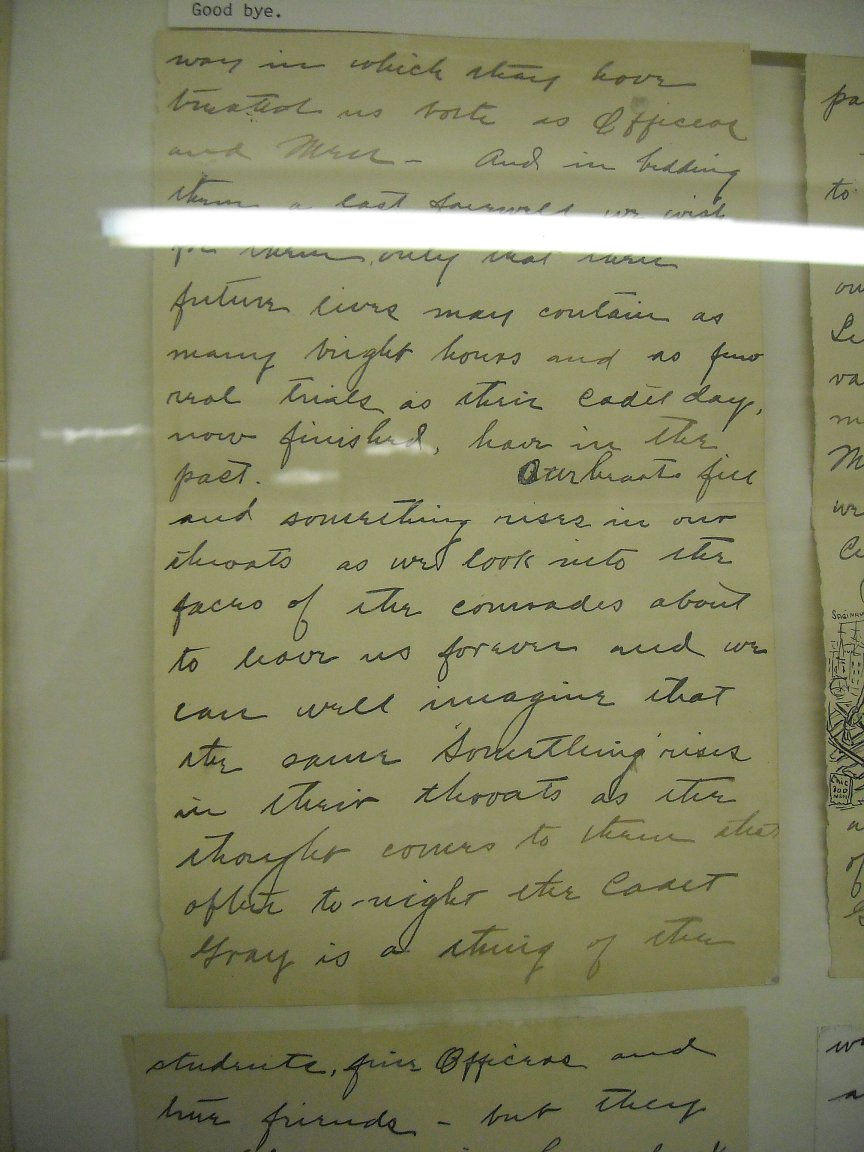 Good bye.
way in which they have
treated us both as Officers
and Men - And in bidding
them a last farewell we wish
for them, only that their
future lives may contain as
many bright hours and as few
real trials as their Cadet days,
now finished, have in the
past. Our hearts fill
and something rises in our
throats as we look into the
faces of the comrades about
to leave us forever and we
can well imagine that
the same "Something" rises
in their throats as the
thought comes to them that
after to-night the Cadet
Gray is a thing of the
students, fine Officers and
true friends - but they
pa
to
ou
Le
va
m
M
we
Ce
SAGINAW
of